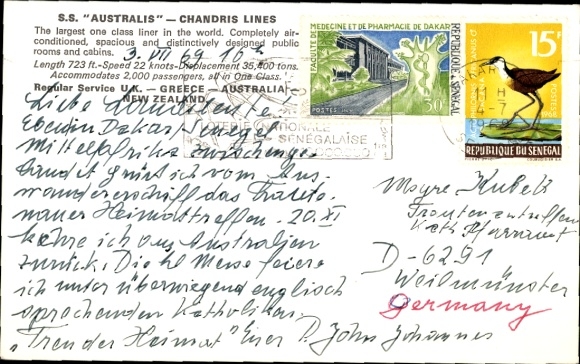 S.S. "AUSTRALIS" — CHANDRIS LINES
The largest one class liner in the world. Completely air-
conditioned, spacious and distinctively designed public
rooms and cabins.
3. VII 69 10 h
Length 723 ft.-Speed 22 knots-Displacement 35,400 tons.
Accommodates 2,000 passengers, all in One Class.
Regular Service U.K. — GREECE — AUSTRALIA
NEW ZEALAND
Liebe
Eben in Dakar/Senegal
Mittelafrika
grüßt ich vom Aus-
wandererschiff das Traute-
nauer Heimattreffen. 20. XI
kehre ich aus Australien
zurück. Die hl Messe feiere
ich unter überwiegend englisch
sprechenden Katholiken.
"Treu der Heimat" Euer P. John Johannes
FACULTÉ DE MÉDECINE ET DE PHARMACIE DE DAKAR
RÉPUBLIQUE DU SÉNÉGAL
POSTES
30F
15F
RÉPUBLIQUE DU SÉNÉGAL
DAKAR
11 H
4-7
1969
SÉNÉGALAISE
Msgre Kubek
Trautenautreffen
Kath Pfarramt
D-6291
Weilmünster
Germany